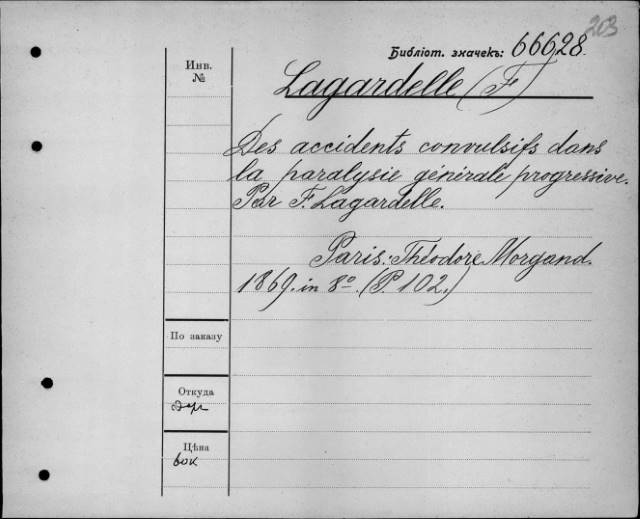 203
Библіот. значекъ: 66628.
Инв.
№
Lagardelle (F)
Des accidents convulsifs dans
la paralysie générale progressive.
Par F. Lagardelle.
Paris. Théodore Morgand.
1869. in 8º. (P. 102.)
По заказу
Откуда
Цѣна